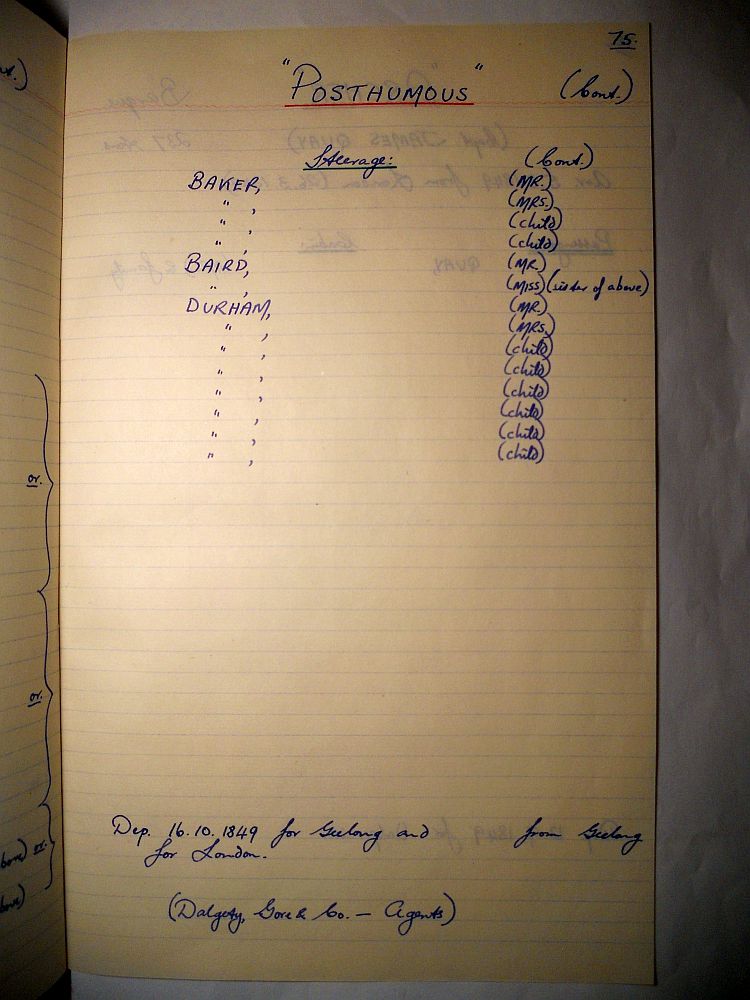 75.
"POSTHUMOUS" (Cont.)
Steerage: (Cont.)
BAKER, (MR.)
" , (MRS.)
" , (child)
" , (child)
BAIRD, (MR.)
" , (MISS) (sister of above)
DURHAM, (MR.)
" , (MRS.)
" , (child)
" , (child)
" , (child)
" , (child)
" , (child)
" , (child)
or.
or.
or.
Dep. 16.10.1849 for Geelong and from Geelong
for London.
(Dalgety, Gore & Co. — Agents)